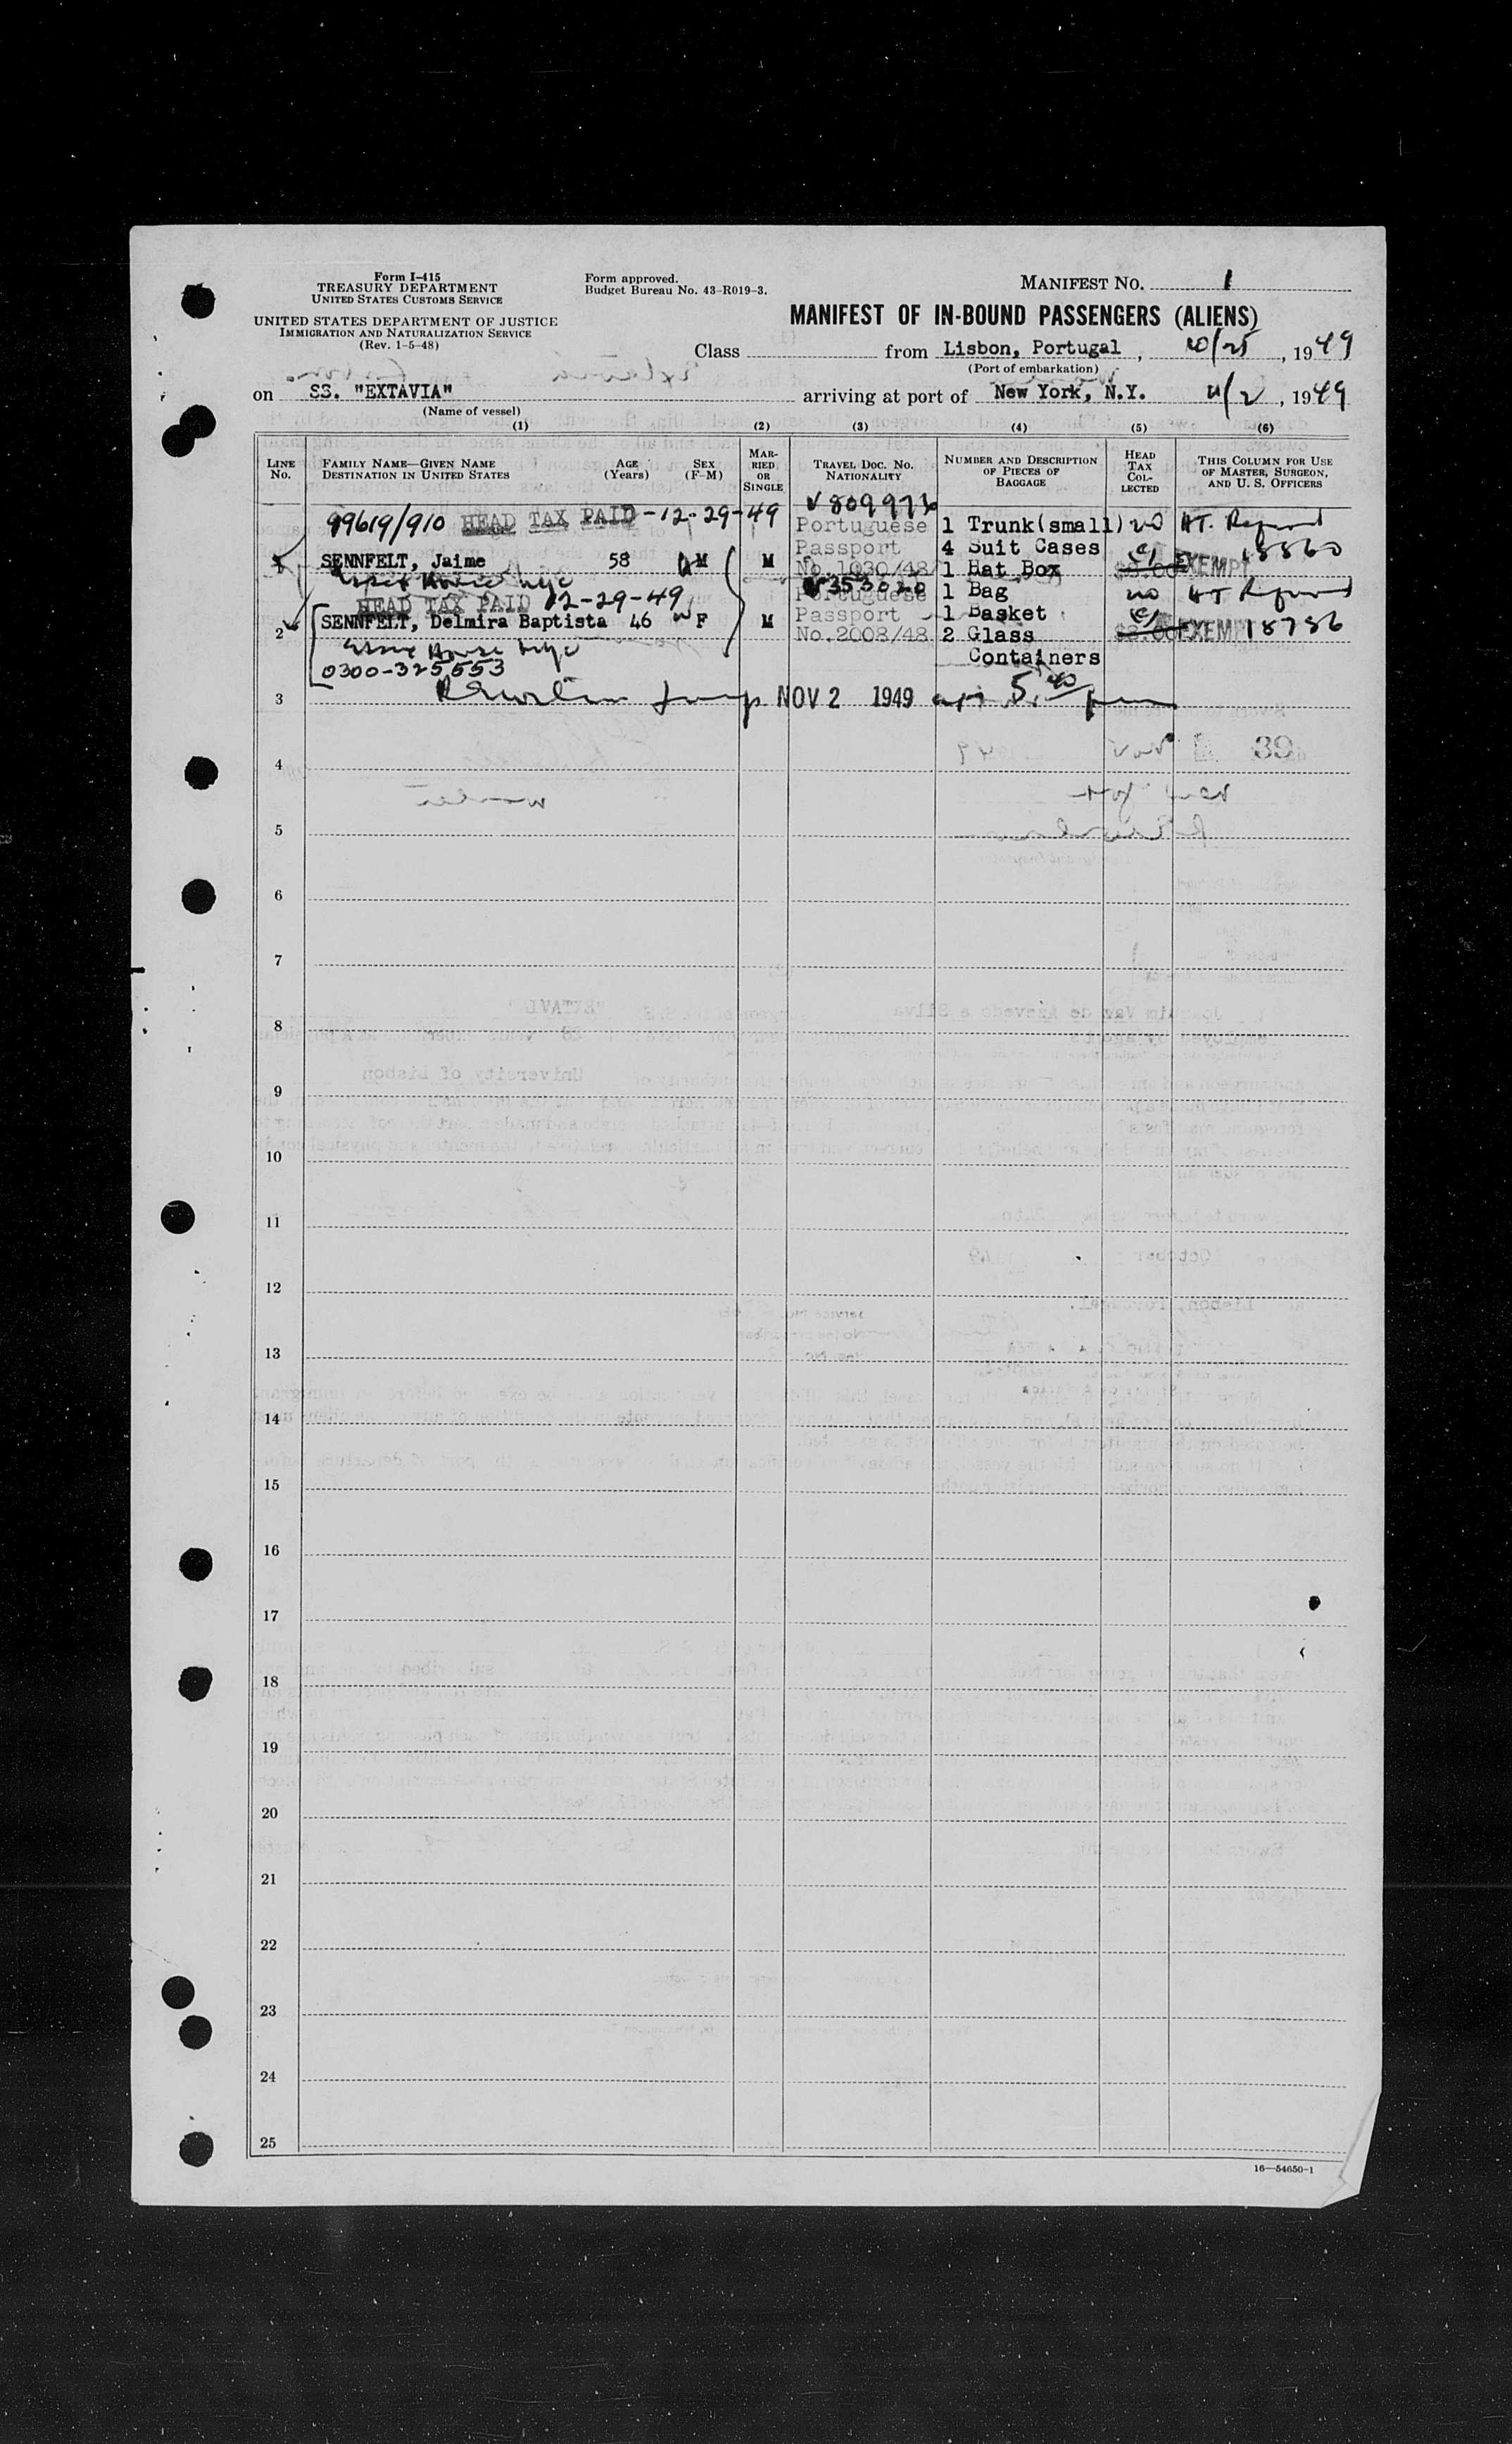 Form I-415
TREASURY DEPARTMENT
UNITED STATES CUSTOMS SERVICE
UNITED STATES DEPARTMENT OF JUSTICE
IMMIGRATION AND NATURALIZATION SERVICE
(Rev. 1-5-48)
Form approved.
Budget Bureau No. 43-R019-3.
MANIFEST NO. 1
MANIFEST OF IN-BOUND PASSENGERS (ALIENS)
Class from Lisbon, Portugal, 10/25, 1949
(Port of embarkation)
on SS. "EXTAVIA" arriving at port of New York, N.Y. 11/2, 1949
(Name of vessel)
(1) (2) (3) (4) (5) (6)
LINE NO.
FAMILY NAME—GIVEN NAME
DESTINATION IN UNITED STATES
AGE (Years)
SEX (F-M)
MARRIED OR SINGLE
TRAVEL DOC. NO. NATIONALITY
NUMBER AND DESCRIPTION OF PIECES OF BAGGAGE
HEAD TAX COLLECTED
THIS COLUMN FOR USE OF MASTER, SURGEON, AND U. S. OFFICERS
99619/910 HEAD TAX PAID-12-29-49
Portuguese 1 Trunk(small) no HT. Refund
Passport 4 Suit Cases
SENNFELT, Jaime 58 M M
No.1030/48 1 Hat Box $8.00 EXEMPT 18860
Essex House NYC
353020
HEAD TAX PAID 12-29-49
Portuguese 1 Bag no HT Refund
2 SENNFELT, Delmira Baptista 46 F M
Passport 1 Basket
No.2008/48 2 Glass $8.00 EXEMPT 18786
Essex House NYC
Containers
0300-325553
3 NOV 2 1949 5:40 pm
39
4
5
6
7
8
9
10
11
12
13
14
15
16
17
18
19
20
21
22
23
24
25
16—54650-1